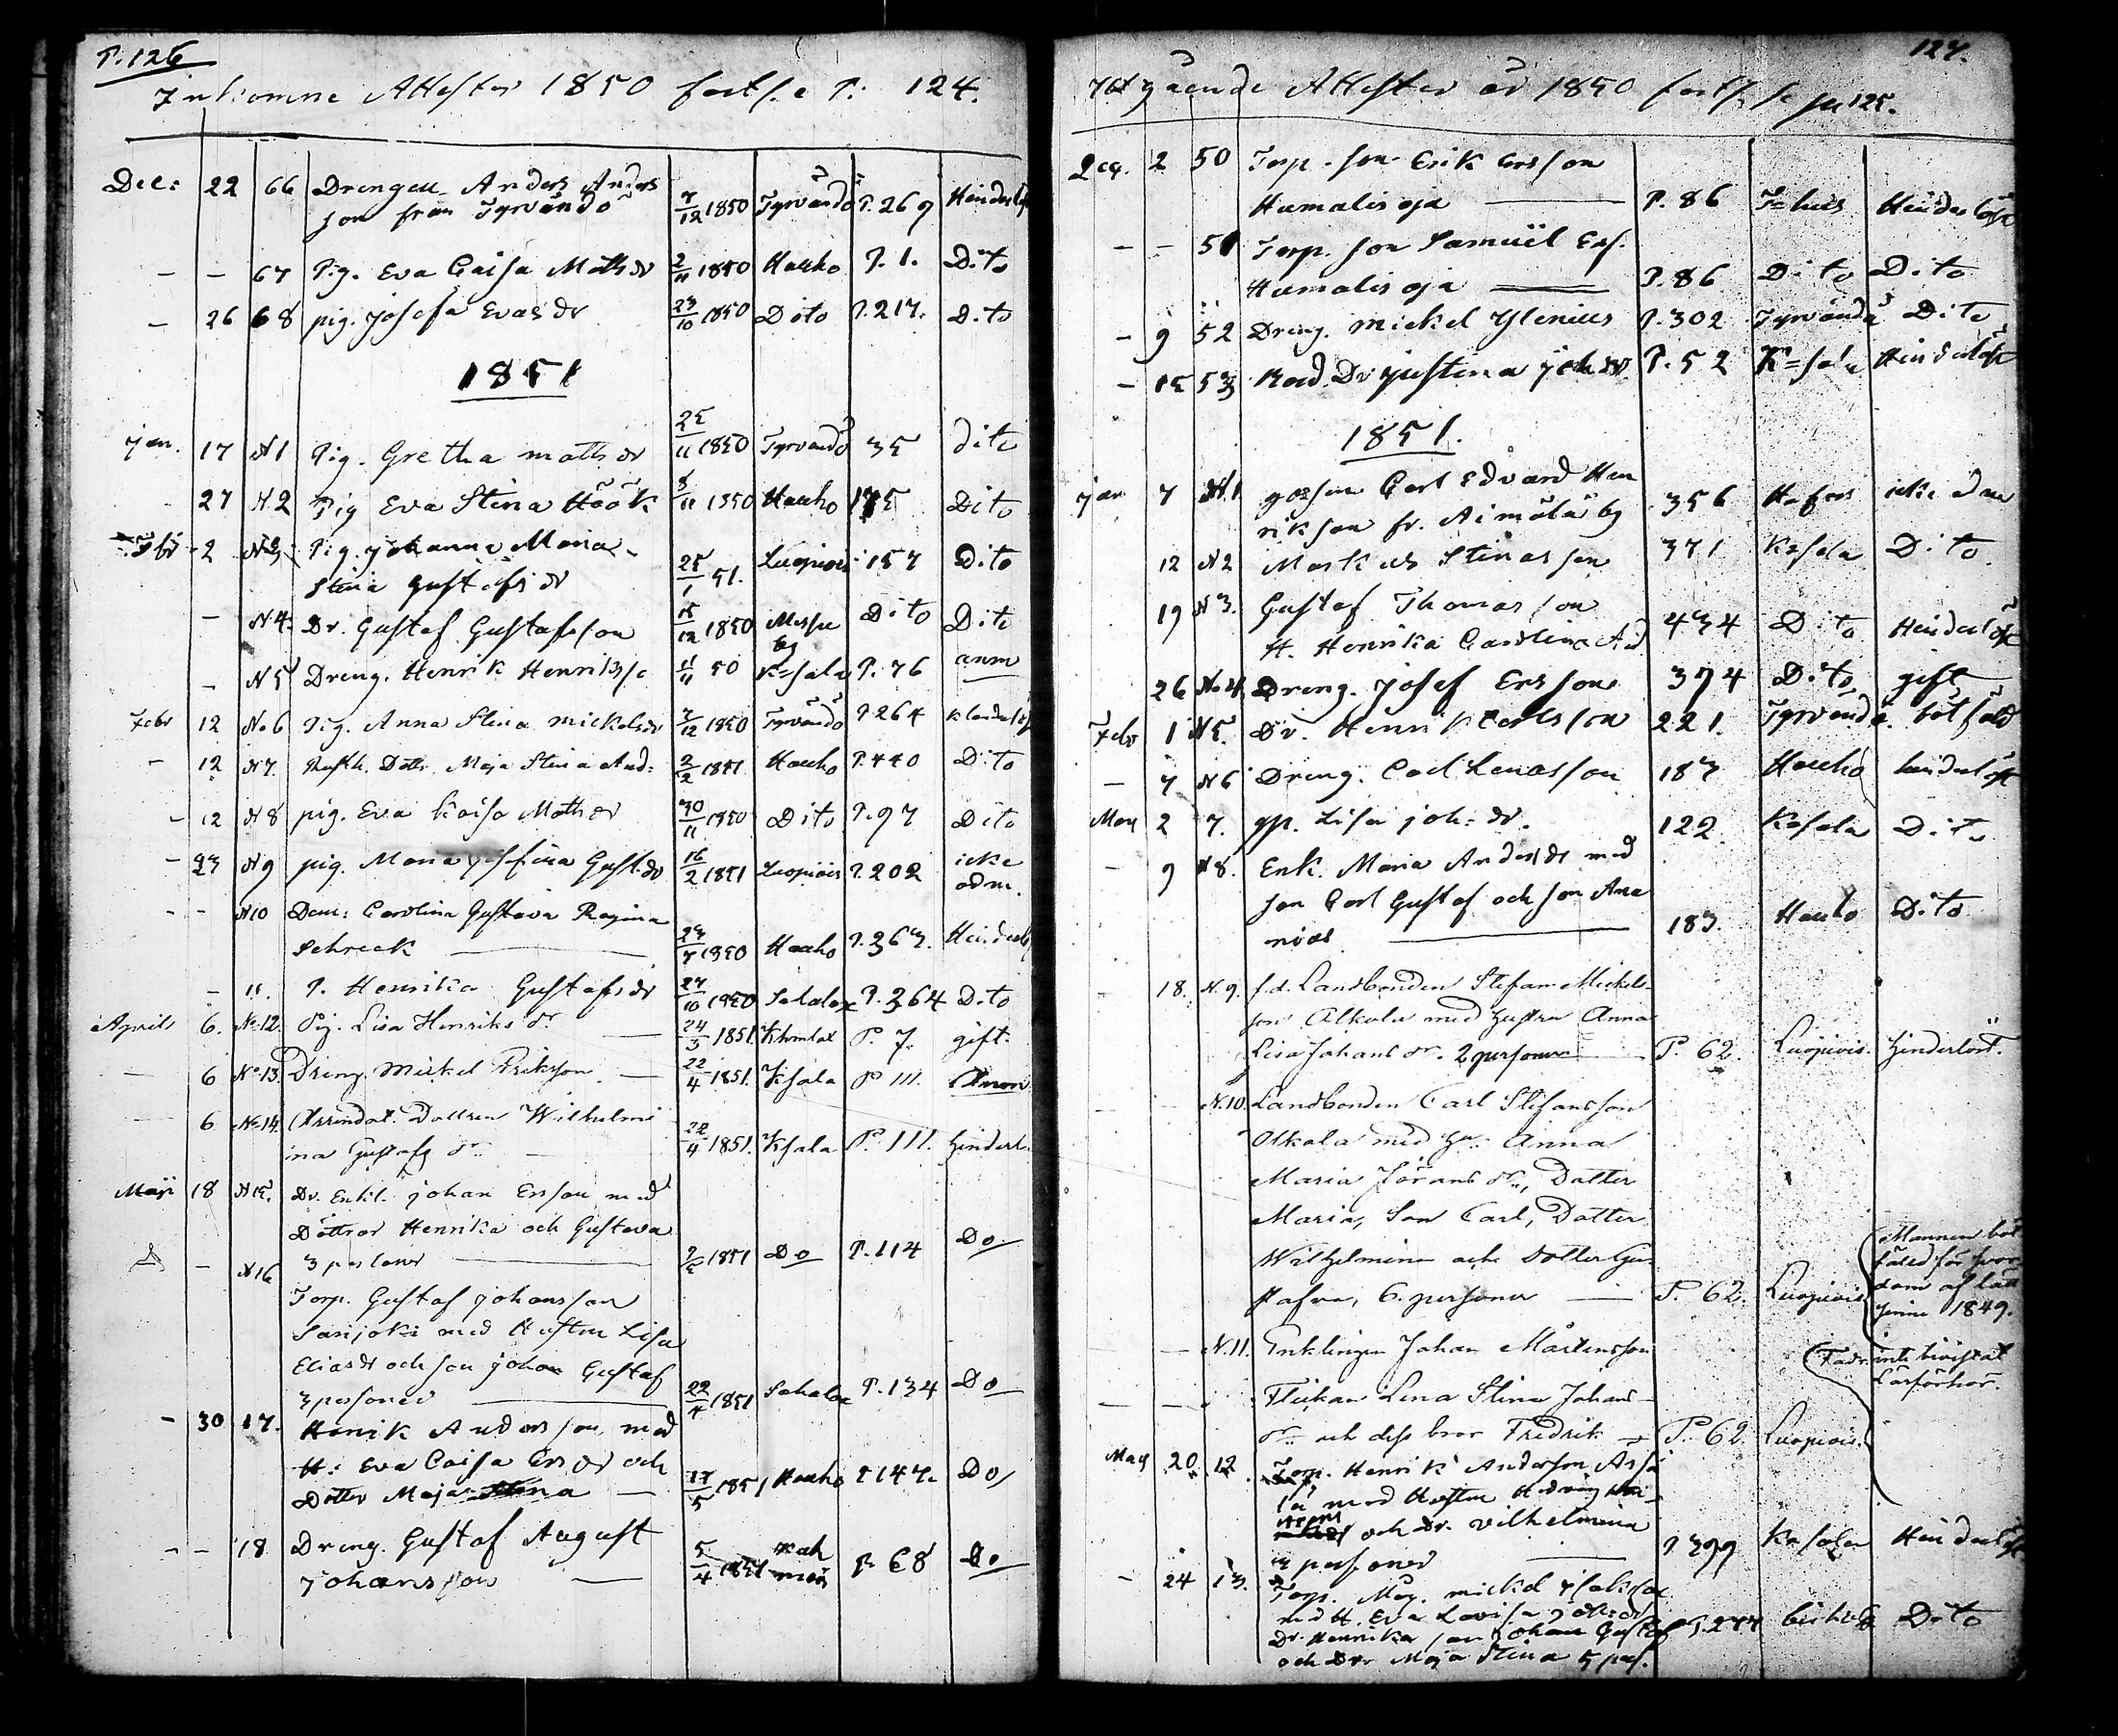 P. 126
Inkomne Attester 1850 forts. se P. 124.
Dec: 22 66 Drengen Anders Anders
son från Tyrvändö 7/12 1850 Tyrvändö P. 269
— — 67 Pig. Eva Caisa Matts dr 2/11 1850 Hauho P. 1. Dito
— 26 68 pig. Josefa Evas dr 23/10 1850 Dito P. 217. Dito
1851
Jan. 17 N 1 Pig. Gretha matts dr 25/11 1850 Tyrvändö 35 dito
27 N. 2 Pig Eva Stina Höök 8/11 1850 Hauho 175 Dito
Febr 2 N 3 Pig. Johanna Maria
Stina Gustafs dr 25/1 51. Luopiois 157 Dito
— N 4. Dr. Gustaf Gustafsson 15/12 1850 by Dito Dito
— N 5 Dreng. Henrik Henriks 11/11 50 K=sala P. 76 anm
Febr 12 No 6 Pig. Anna Stina Mickelsdr 7/12 1850 Tyrvändö P 264
— 12 N 7. Rusth. Dottr. Maja Stina And: 2/2 1851 Hauho P. 440 Dito
— 12 N 8 pig. Eva Kaisa Matts dr 30/11 1850 Dito P. 97 Dito
— 23 N 9 pig. Maria Josefina Gust. dr 16/2 1851 Luopiois P. 202 icke
adm.
— — N 10 Dem: Carolina Gustava Regina
Schreck 23/7 1850 Hauho P. 363.
— 11. P. Henrika Gustafs dr 27/10 1850 Sahalax P. 364 Dito
April 6. No 12. Pig. Lisa Henriks dr 24/3 1851. P. 7. gift.
— 6 No 13. Dreng. Mickel Eriksson 22/4 1851. Ksala P 111. Anm
— 6 No 14. Arrendat. Dottren Wilhelmi
na Gustafs dr 22/4 1851. Ksala P. 111.
Maji 18 N 15. Dr. Enkl. Johan Ersson med
Döttrar Henrika och Gustava
3 personer 1851 Do P. 114 Do
— N 16
Torp. Gustaf Johansson
Sarijoki med Hustru Lisa
Elias dr och son Johan Gustaf
3 personer 22/4 1851 Sahalax P. 134 Do
— 30 17. Henrik Andersson med
H: Eva Caisa Ers dr och
Dotter Maja Stina 17/5 1851 Hauho P 147. Do
— — 18 Dreng. Gustaf August
Johansson 5/4 1851 P. 68 Do
127.
Utgående Attester år 1850 forts. se pag 125.
Dec. 2 50 Torp. son Erik Ersson
Humalisoja P. 86 Hinderlöst
— — 51 Torp. son Samuel Ers.
Humalisoja P. 86 Dito Dito
— 9 52 Dreng. Mickel Ylenius P. 302 Tyrvändö Dito
— 15 53 Justina Joh dr P. 52 K=sala Hinderlöst
1851.
Jan 7 N. 1 gossen Carl Edvard Hen
riksson fr. Aimälä by 356 icke adm
12 N 2 Markus Stinasson 371 K=sala Dito
19 N 3. Gustaf Thomasson
H. Henrika Carolina Ad 434 Dito Hinderlöst
26 No 4. Dreng. Josef Ersson 374 Dito gift
Febr 1 N 5. Dr. Henrik Carlsson 221. Tyrvändö. bötfäld
— 7 N 6 Dreng. Carl Lenasson 187 Hauho hinderlöst
Mars 2 7. gp. Lisa Joh: dr. 122 K=sala Dito
— 9 N 8. Enk. Maria Anders dr med
son Carl Gustaf och son Ana
nias 183. Hauho Dito
18. N. 9. f.d. Landbonden Stefan Mickels-
son Alkula med hustru Anna
Lisa Johans dr. 2 personer P. 62. Luopiois. Hinderlöst.
N. 10. Landbonden Carl Stefansson
Olkala med hu: Anna
Maria Jörans dr., Dotter
Maria, Son Carl, Dotter
Wilhelmina och Dotter Gu-
stafva, 6. personer P. 62. Luopiois
Mannen böt
fäld för hor
dom af
1849.
— N. 11. Enklingen Johan Mårtensson
inte bevistat
Läsförhör.
— — Flickan Lena Stina Johans
dr. och dess bror Fredrik P. 62 Luopiois.
Maij 20. 12. Torp. Henrik Andersson
med Hustru Hedvig
och Dr. Vilhelmina
3 personer P 399 K=sala Hinderlöst
— 24 13. Torp. Måg. Mickel Isaksson
med H. Eva Lovisa
Dr. Henrika son Johan Gustaf P. 277 Dito
och Dr. Maja Stina 5 pers.